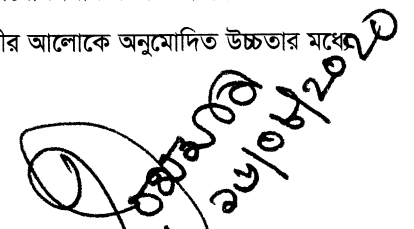 ীর আলোকে অনুমোদিত উচ্চতার মধ্যে
১৬/০৮/২০২০